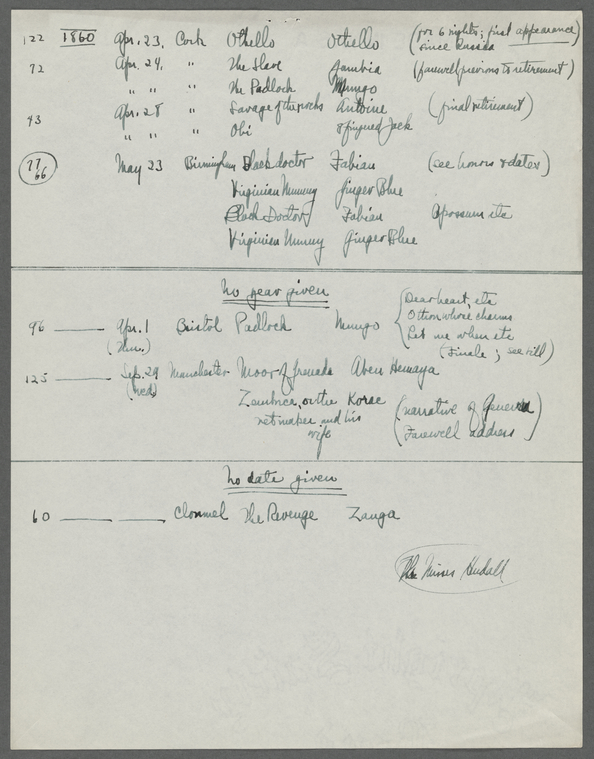 122 1860 Apr. 23, Cork Othello Othello (for 6 nights; first appearance
since Russia)
72 Apr. 24, " The Slave Gambia (farewell previous to retirement)
" " " The Padlock Mungo
43 Apr. 28 " Savage of the rocks Antoine (final retirement)
" " " Obi 3 fingered Jack
77/66 May 23 Birmingham Black doctor Fabian (see honors & dates)
Virginian Mummy Ginger Blue
Black Doctor Fabian Opossum etc
Virginian Mummy Ginger Blue
No year given
96 Apr. 1 Bristol Padlock Mungo { Dear heart, etc
(Thu.) O thou whose charms
Let me when etc
(Finale; see bill)
125 Sep. 29 Manchester Moor of Grenada Aben Hemaya
(Wed) Zembuca, or the Korae (narrative of Geneva
net maker and his Farewell address)
wife
No date given
60 Clonmel The Revenge Zanga
The Misses